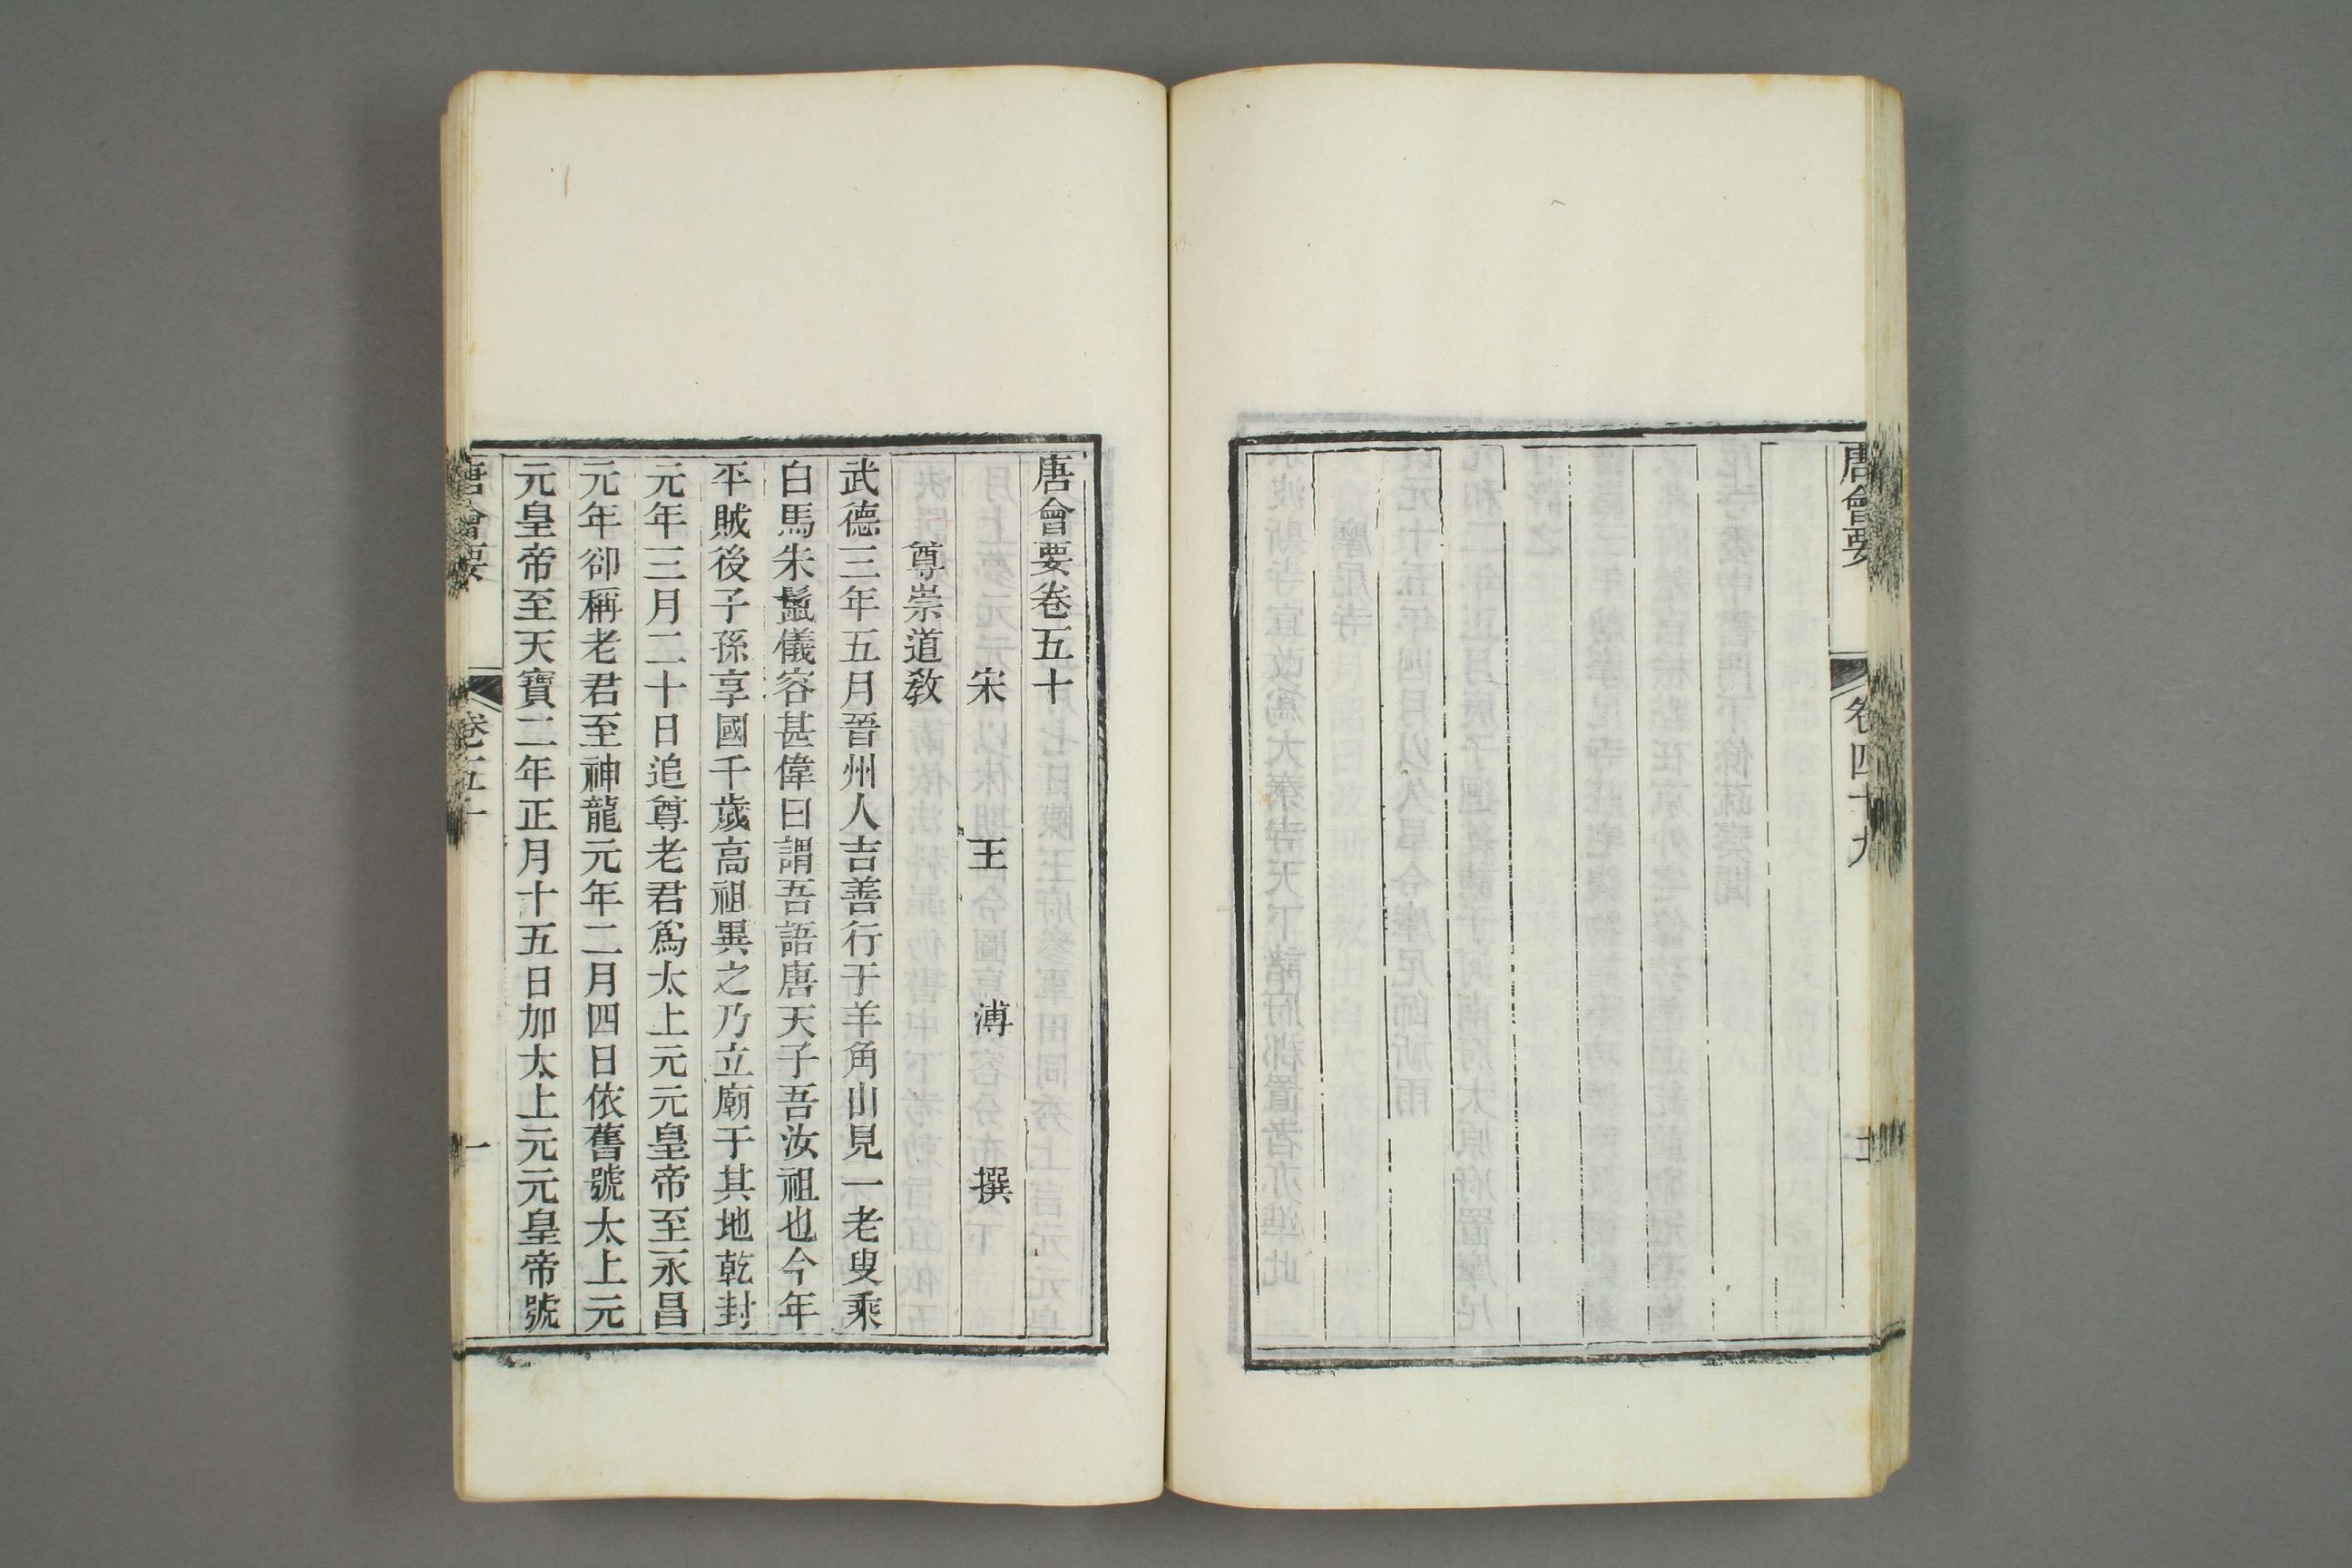 唐會要
卷四十九
唐會要卷五十
宋 王 溥 撰
尊崇道教
武德三年五月晉州人吉善行于羊角山見一老叟乘
白馬朱鬛儀容甚偉曰謂吾語唐天子吾汝祖也今年
平賊後子孫享國千歲高祖異之乃立廟于其地乾封
元年三月二十日追尊老君爲太上元元皇帝至永昌
元年卻稱老君至神龍元年二月四日依舊號太上元
元皇帝至天寶二年正月十五日加太上元元皇帝號
唐會要
卷五十
一